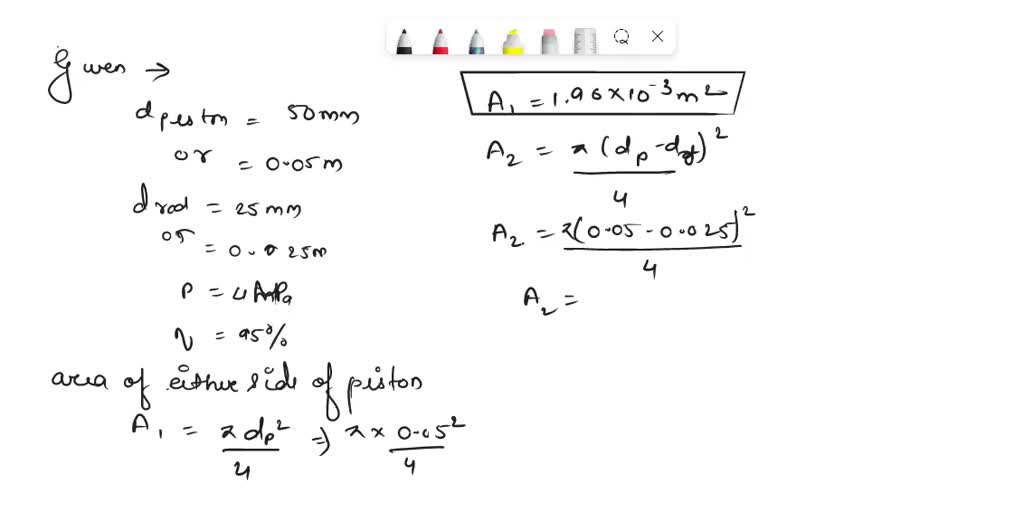 Given →
d piston = 50mm
or = 0.05m
d rod = 25mm
or = 0.025m
P = 4 MPa
η = 95%
area of either side of piston
A₁ = π dp² / 4 ⇒ π × 0.05² / 4
A₁ = 1.96×10⁻³m²
A₂ = π (dp - dr)² / 4
A₂ = π(0.05 - 0.025)² / 4
A₂ =